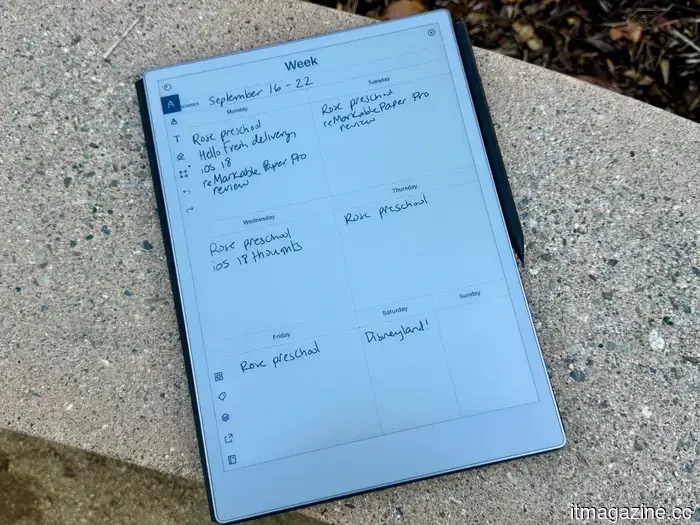 Week
September 16-22
Monday
Rose preschool
Hello Fresh delivery
iOS 18
reMarkable Paper Pro
review
Tuesday
Rose preschool
reMarkable Paper Pro
review
Wednesday
Rose preschool
iOS 18 thoughts
Thursday
Rose preschool
Friday
Rose preschool
Saturday
Disneyland!
Sunday
itmagazine.cc